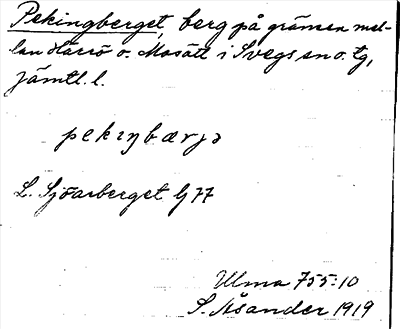 Pekingberget, berg på gränsen mel-
lan Härrö o. Mosätt i Svegs sn o. tg,
Jämtl. l.
pekiŋbærjə
L. Sjöarberget G 77
Ulma 755:10
S. Åsander 1919